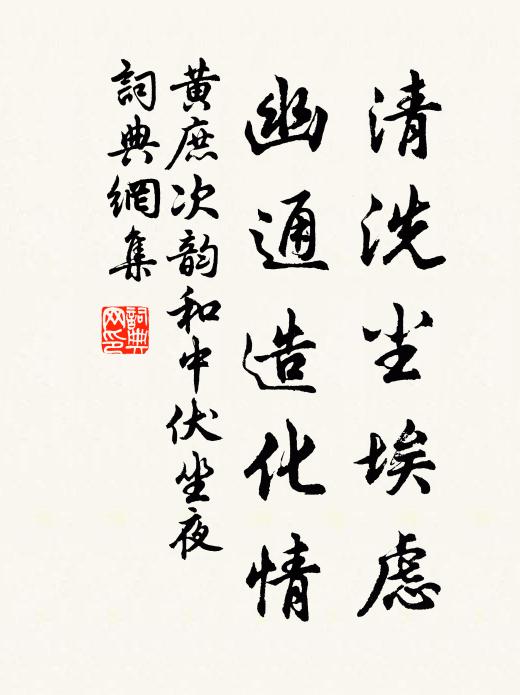 清洗尘埃虑
幽通造化情
黃庶次韵和中伏坐夜
詞典網集
詞典网印